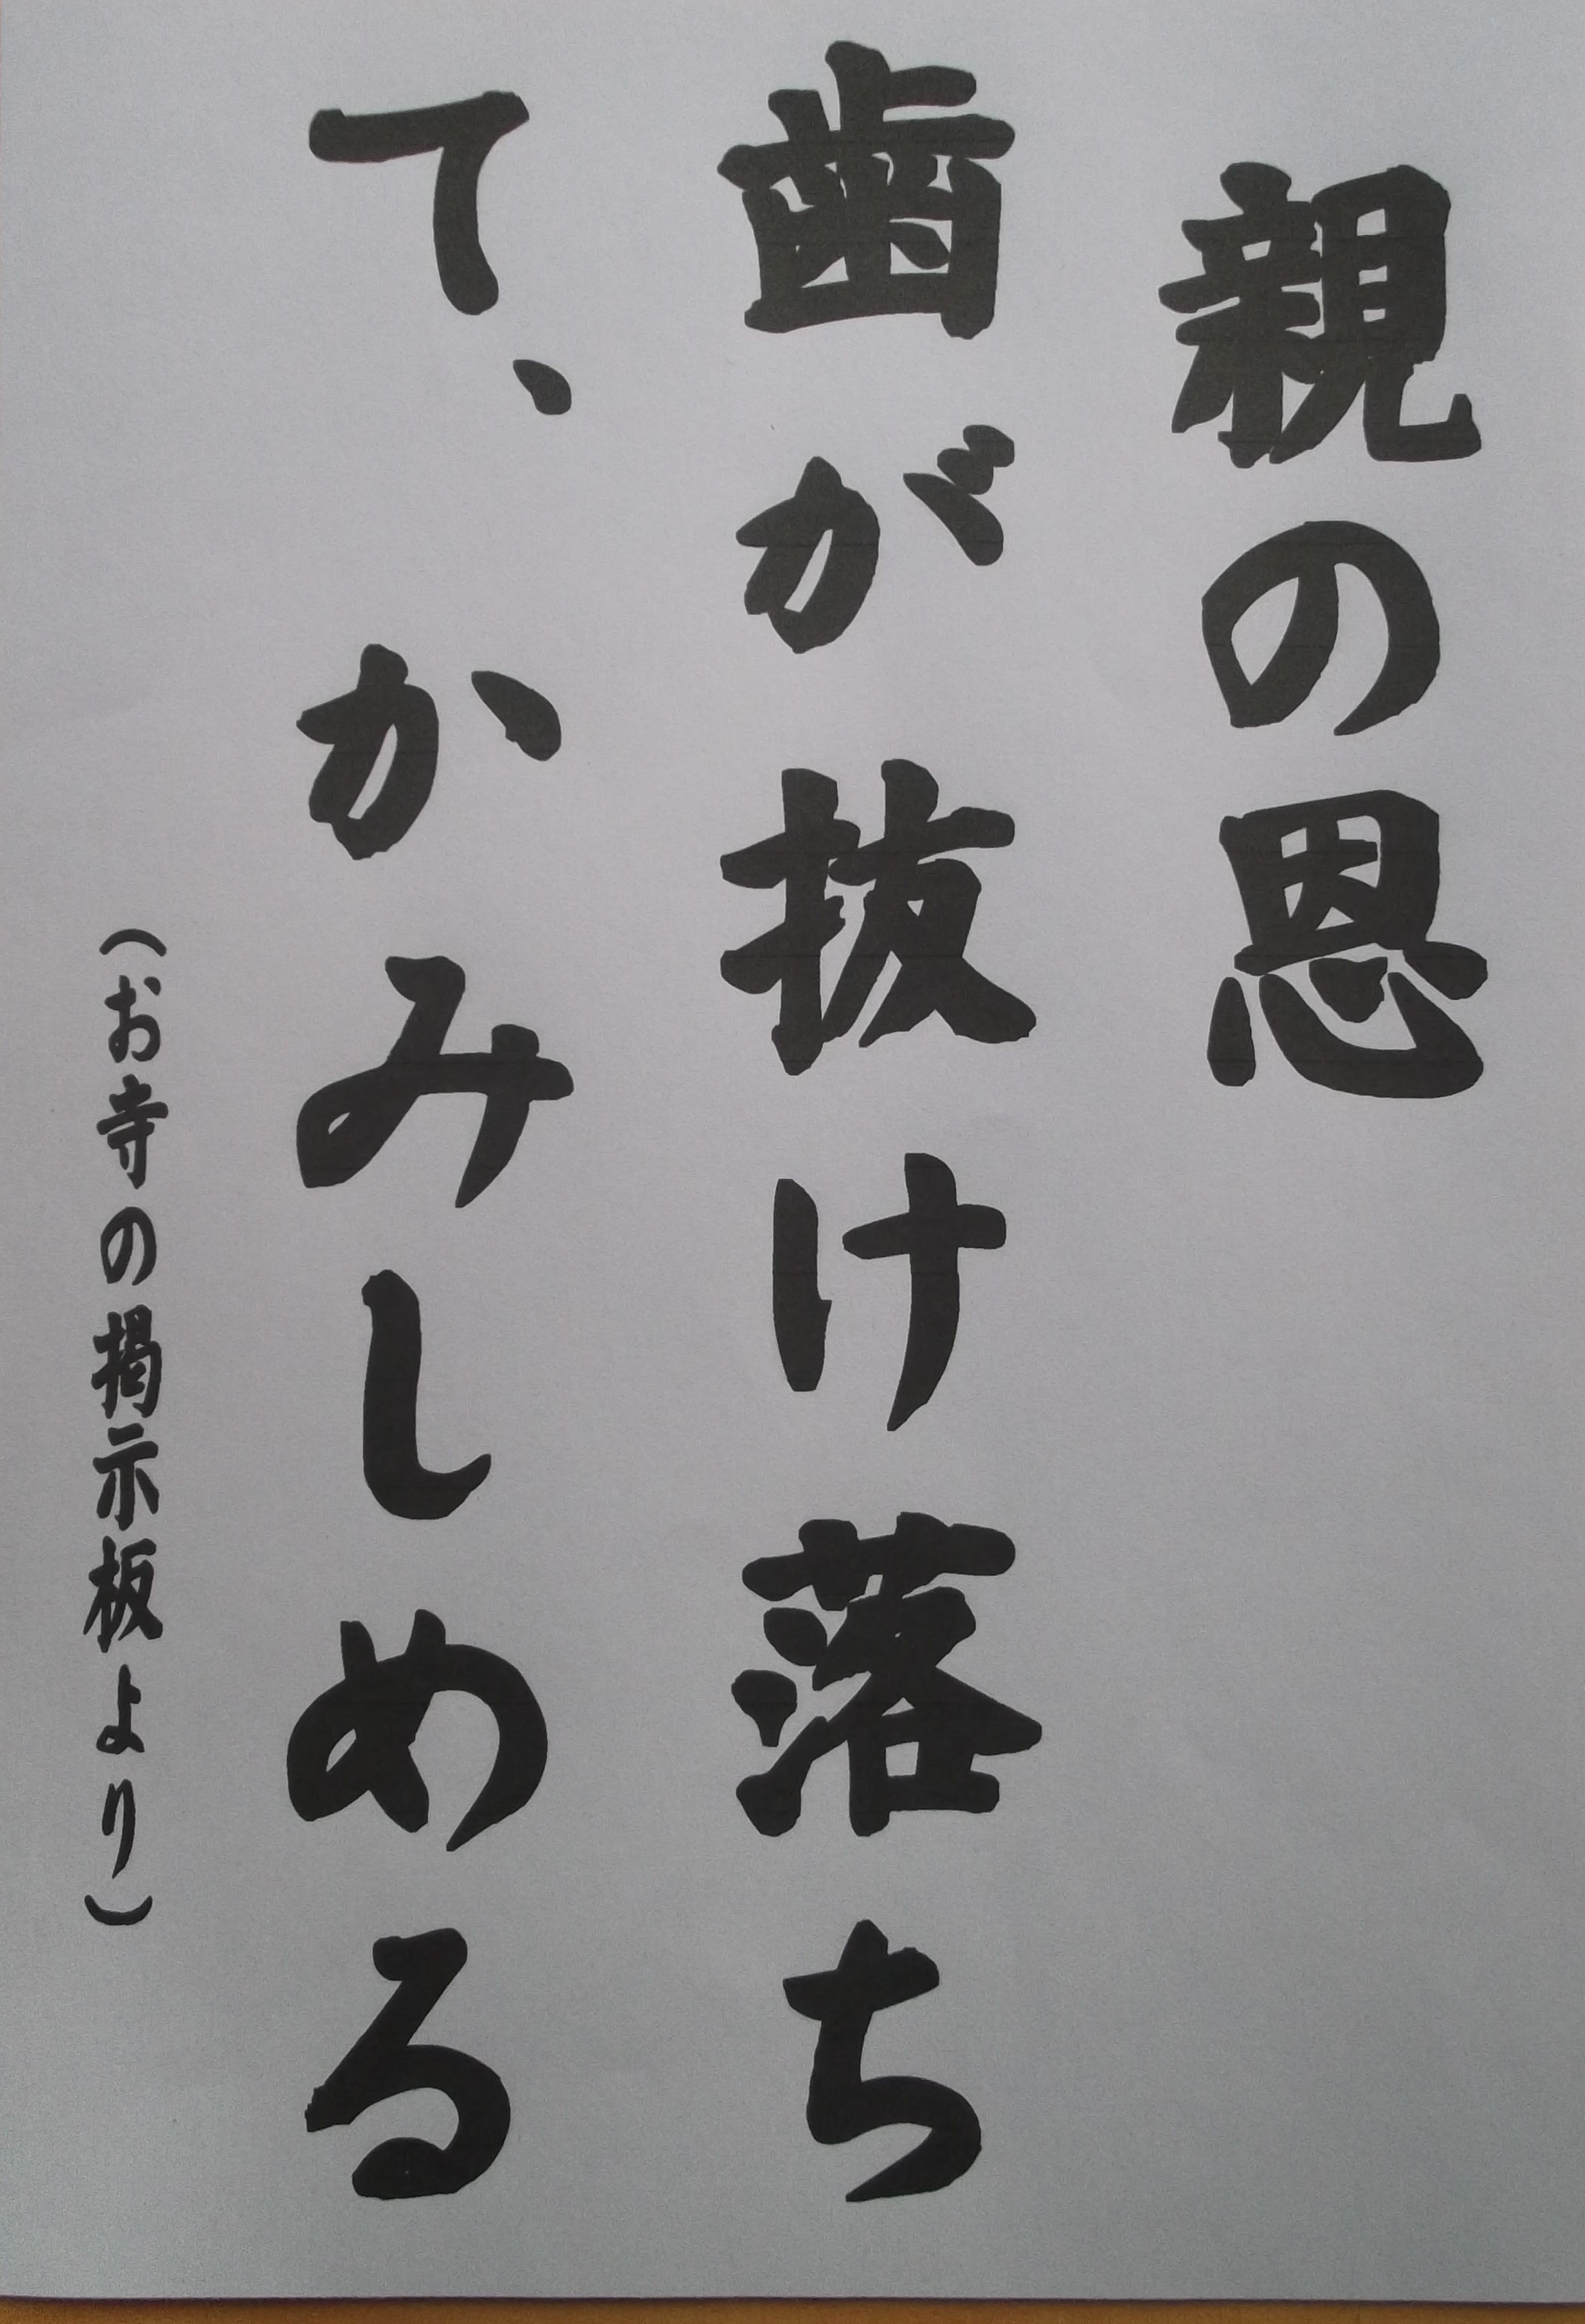 親の恩
歯が抜け落ち
て、かみしめる
（お寺の掲示板より）